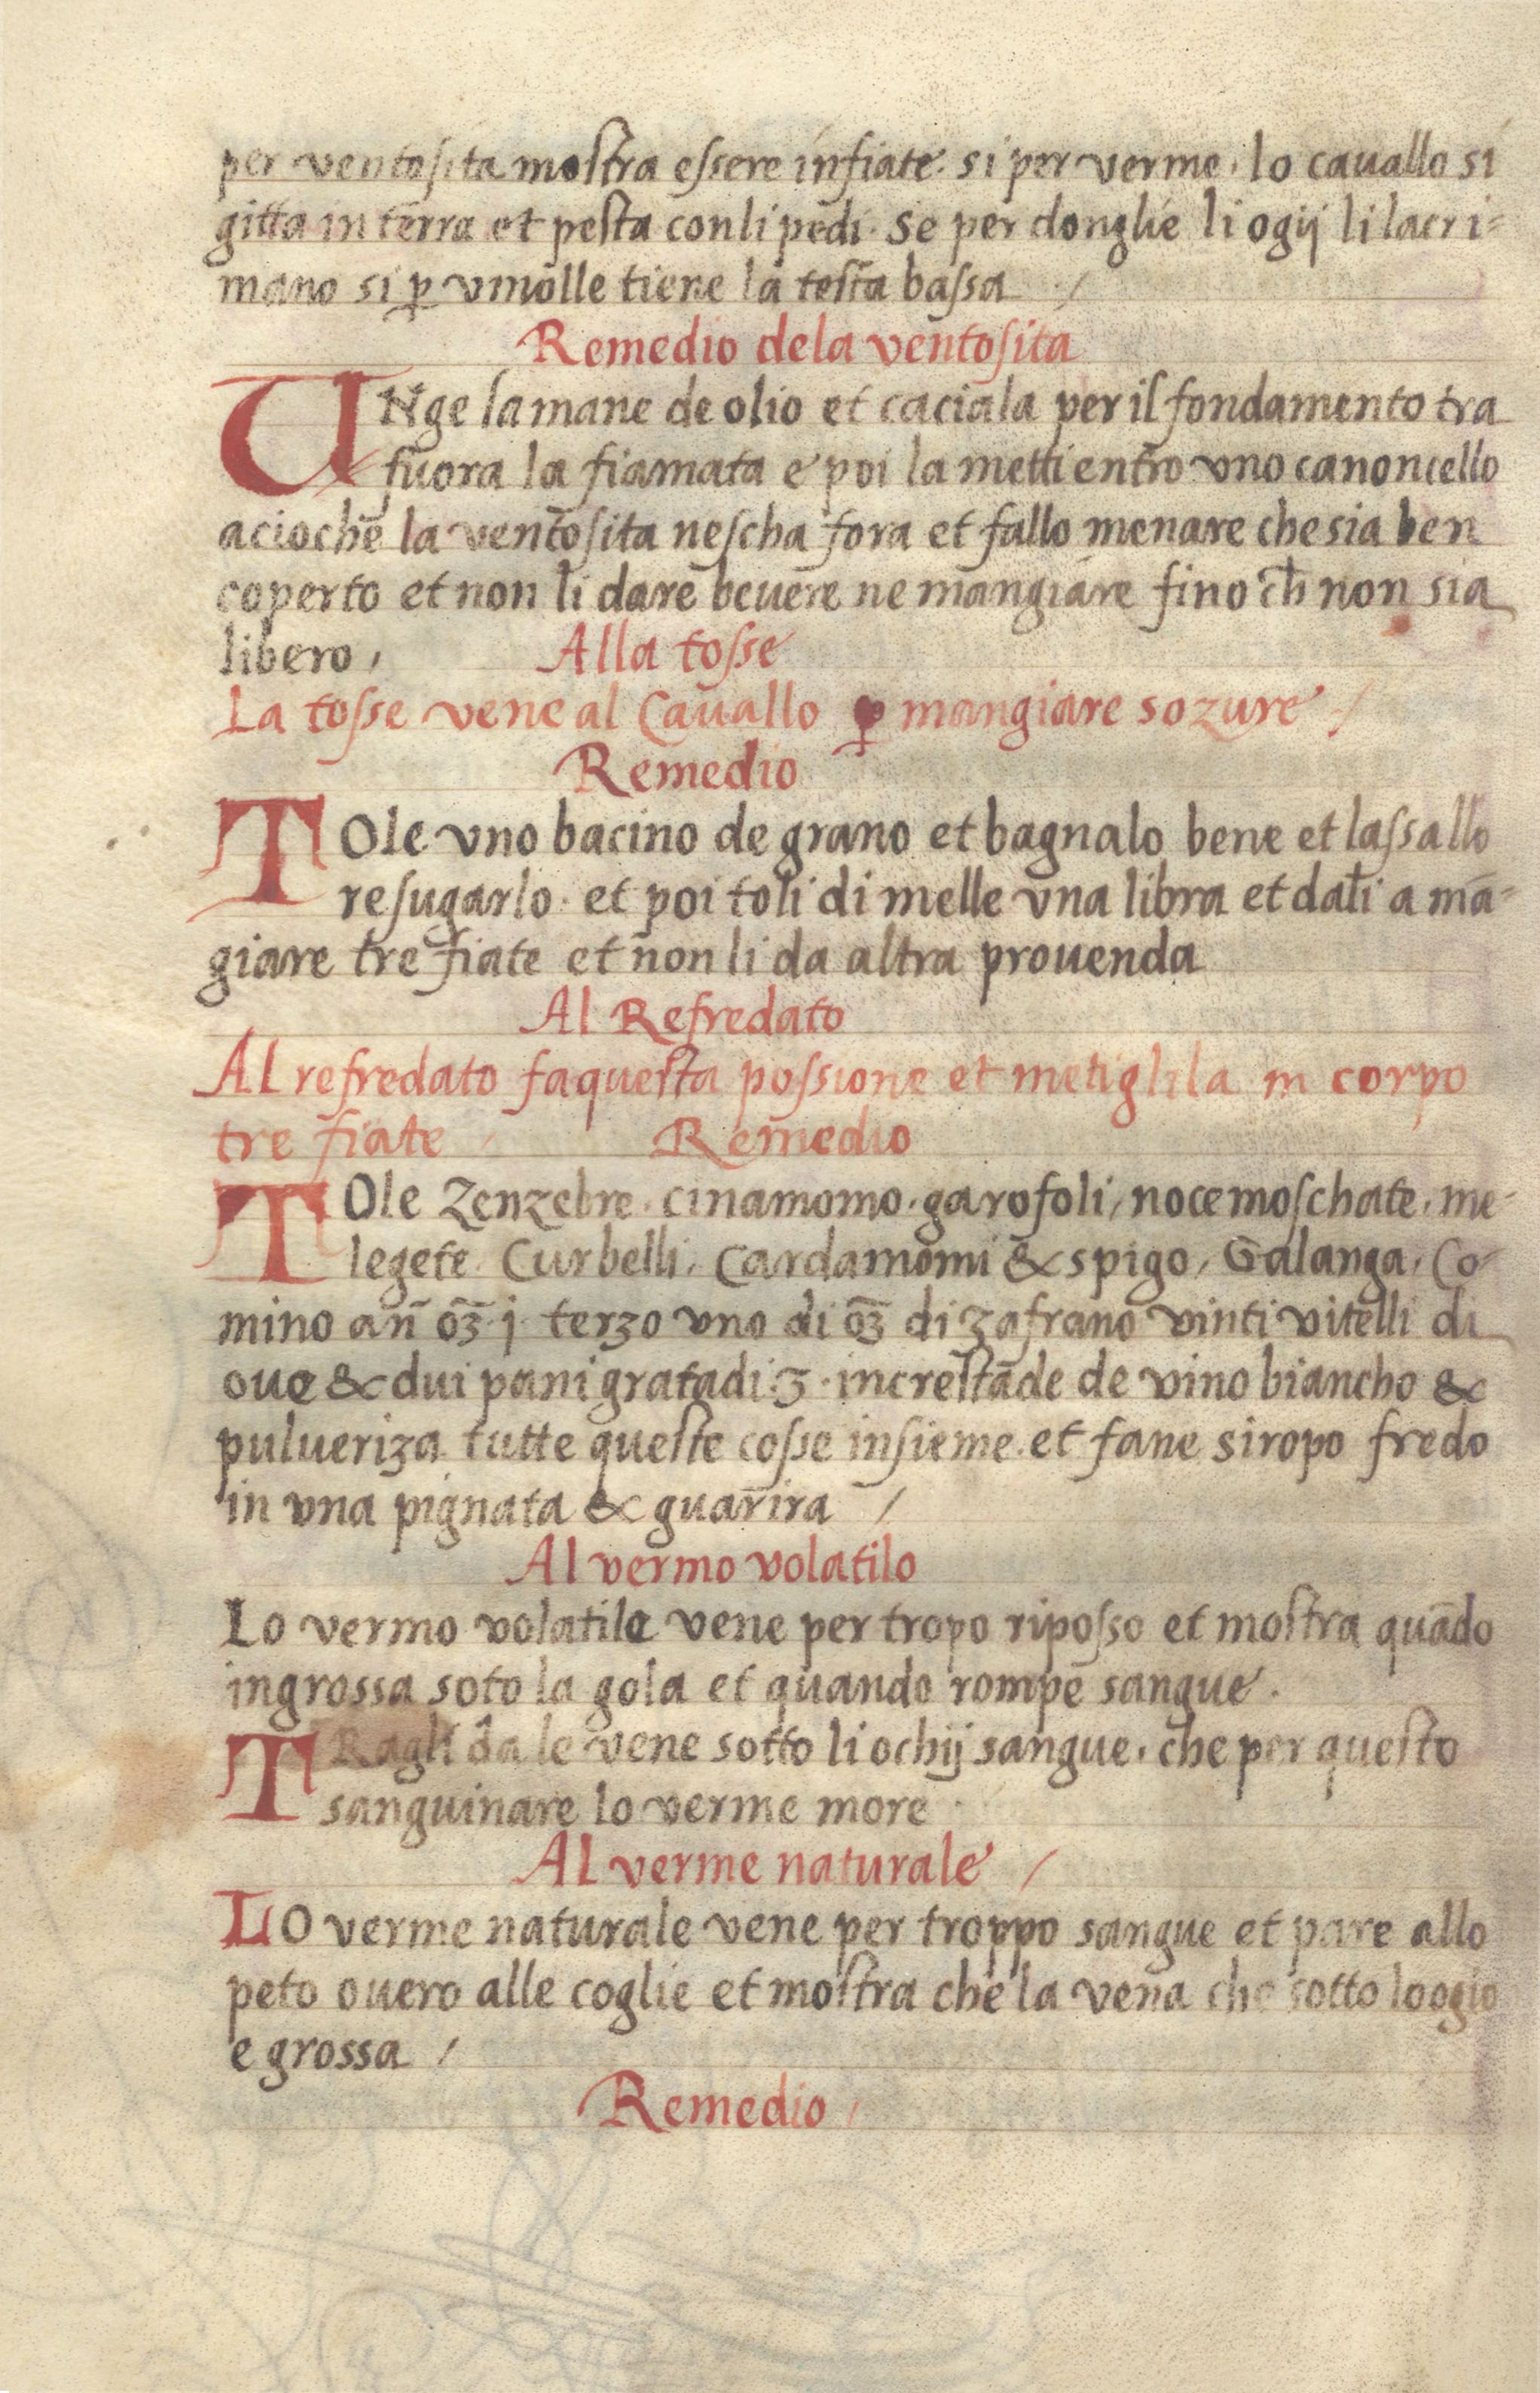 per ventosita mostra essere infiate. si per verme. lo cauallo si
gitta in terra et pesta con li pedi. se per donglie li ogij li lacri-
mano si ꝑ vmolle tiene la testa bassa /
Remedio dela ventosita
UNge la mane de olio et caciala per il fondamento tra
fuora la fiamata e poi la metti entro vno canoncello
acioche la ventosita nescha fora et fallo menare che sia ben
coperto et non li dare beuere ne mangiare fino ch̄ non sia
libero, Alla tosse
La tosse vene al Cauallo ꝑ mangiare sozure /
Remedio
TOle vno bacino de grano et bagnalo bene et lassallo
resugarlo. et poi toli di melle vna libra et dali a mā-
giare tre fiate et non li da altra prouenda
Al Refredato
Al refredato fa questa possione et metiglila in corpo
tre fiate / Remedio
TOle Zenzebre. cinamomo. garofoli, noce moschate. me-
legete. Curbelli. Cardamomi & spigo, Galanga. Co-
mino an̄ oʒ̄ j terzo vno di oʒ̄ di zafrano vinti vitelli di
oue & dui pani gratadi. 3. increstāde de vino biancho &
pulueriza tutte queste cosse insieme. et fane siropo fredo
in vna pignata & guarira /
Al vermo volatilo
Lo vermo volatile vene per tropo riposso et mostra quādo
ingrossa soto la gola et quando rompe sangue.
TRagli da le vene sotto li ochij sangue. che per questo
sanguinare lo verme more.
Al verme naturale /
LO verme naturale vene per troppo sangue et pare allo
peto ouero alle coglie et mostra che la vena che sotto logio
e grossa /
Remedio /